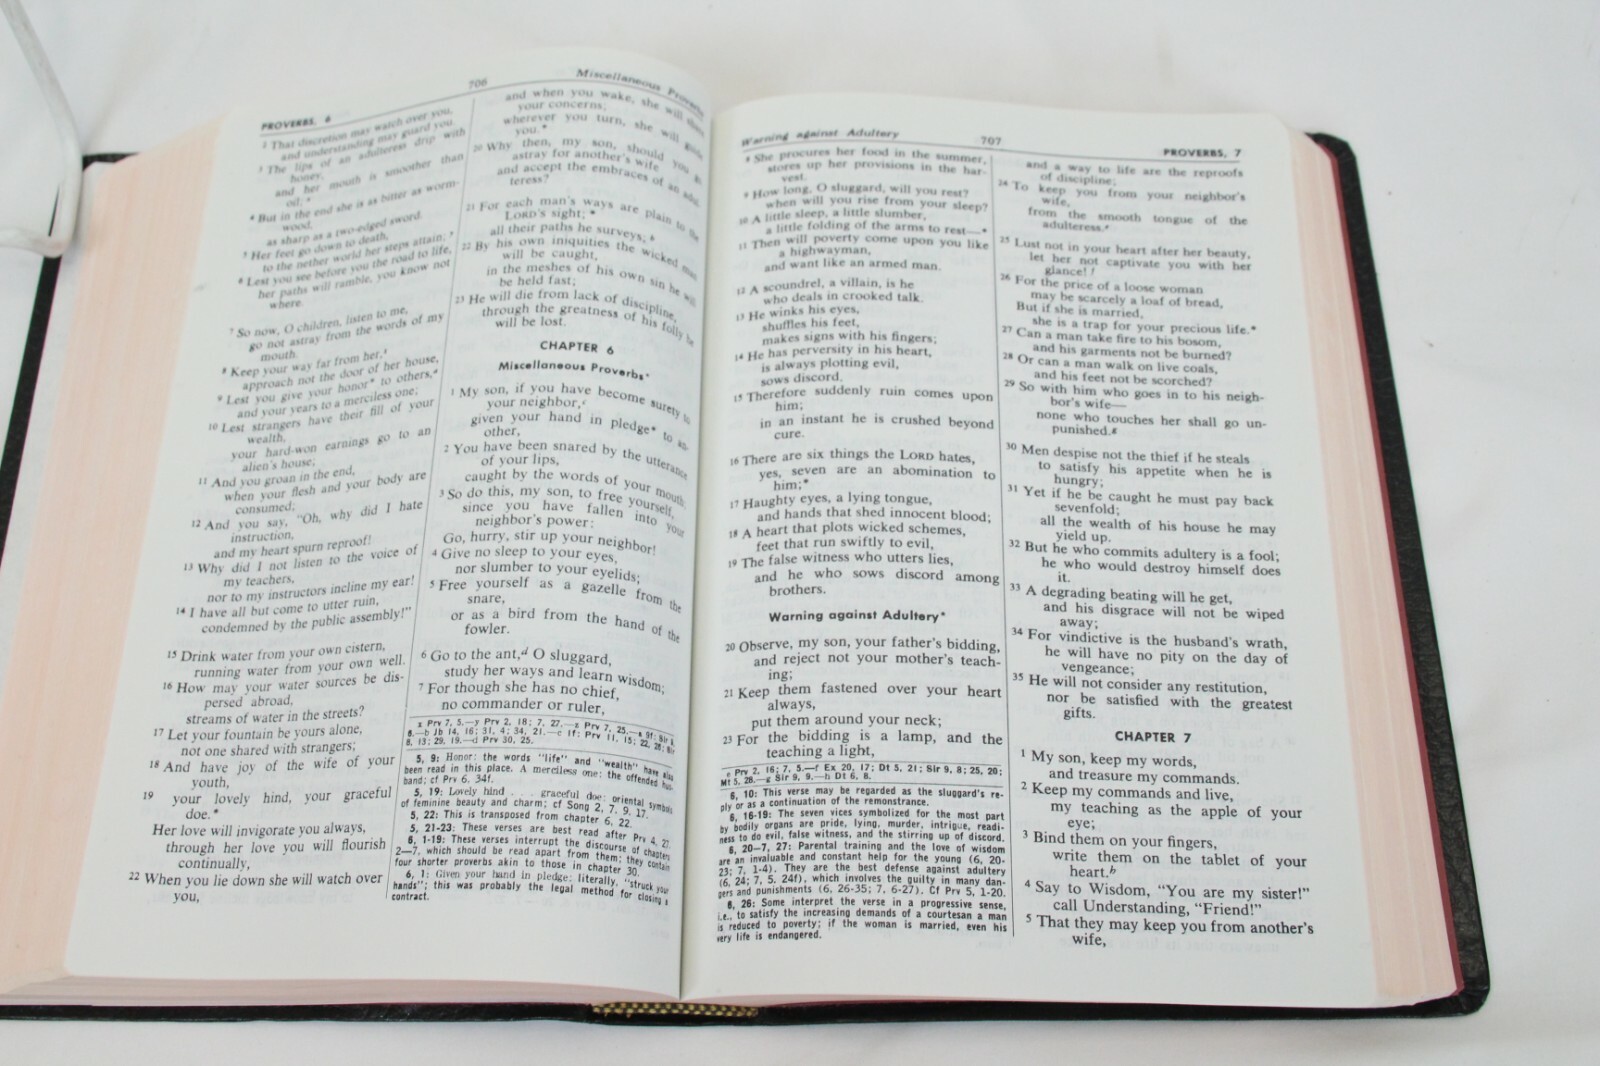 PROVERBS, 6
706
Miscellaneous Proverbs
2 That discretion may watch over you,
and understanding may guard you.
3 The lips of an adulteress drip with
honey,
and her mouth is smoother than
oil; *
4 But in the end she is as bitter as worm-
wood,
as sharp as a two-edged sword.
5 Her feet go down to death,
to the nether world her steps attain;
6 Lest you see before you the road to life,
her paths will ramble, you know not
where.
7 So now, O children, listen to me,
go not astray from the words of my
mouth.
8 Keep your way far from her,
approach not the door of her house,
9 Lest you give your honor* to others,
and your years to a merciless one;
10 Lest strangers have their fill of your
wealth,
your hard-won earnings go to an
alien's house;
11 And you groan in the end,
when your flesh and your body are
consumed;
12 And you say, "Oh, why did I hate
instruction,
and my heart spurn reproof!
13 Why did I not listen to the voice of
my teachers,
nor to my instructors incline my ear!
14 I have all but come to utter ruin,
condemned by the public assembly!"
15 Drink water from your own cistern,
running water from your own well.
16 How may your water sources be dis-
persed abroad,
streams of water in the streets?
17 Let your fountain be yours alone,
not one shared with strangers;
18 And have joy of the wife of your
youth,
19 your lovely hind, your graceful
doe. *
Her love will invigorate you always,
through her love you will flourish
continually,
22 When you lie down she will watch over
you,
and when you wake, she will share
your concerns;
wherever you turn, she will guide
you. *
20 Why then, my son, should you go
astray for another's wife
and accept the embraces of an adul-
teress?
21 For each man's ways are plain to the
LORD's sight; *
all their paths he surveys; *
22 By his own iniquities the wicked man
will be caught,
in the meshes of his own sin he will
be held fast;
23 He will die from lack of discipline,
through the greatness of his folly he
will be lost.
CHAPTER 6
Miscellaneous Proverbs*
1 My son, if you have become surety to
your neighbor,c
given your hand in pledge* to an-
other,
2 You have been snared by the utterance
of your lips,
caught by the words of your mouth;
3 So do this, my son, to free yourself,
since you have fallen into your
neighbor's power:
Go, hurry, stir up your neighbor!
4 Give no sleep to your eyes,
nor slumber to your eyelids;
5 Free yourself as a gazelle from the
snare,
or as a bird from the hand of the
fowler.
6 Go to the ant,d O sluggard,
study her ways and learn wisdom;
7 For though she has no chief,
no commander or ruler,
x Prv 7, 5.—y Prv 2, 18; 7, 27.—z Prv 7, 25.—a 9f: Sir 9,
6.—b Jb 14, 16; 31, 4; 34, 21.—c 1f: Prv 11, 15; 22, 26; Sir
8, 13; 29, 19.—d Prv 30, 25.
5, 9: Honor: the words "life" and "wealth" have also
been read in this place. A merciless one: the offended hus-
band; cf Prv 6, 34f.
5, 19: Lovely hind . . . graceful doe: oriental symbols
of feminine beauty and charm; cf Song 2, 7. 9. 17.
5, 22: This is transposed from chapter 6, 22.
5, 21-23: These verses are best read after Prv 4, 27.
6, 1-19: These verses interrupt the discourse of chapters
2—7, which should be read apart from them; they contain
four shorter proverbs akin to those in chapter 30.
6, 1: Given your hand in pledge: literally, "struck your
hands"; this was probably the legal method for closing a
contract.
Warning against Adultery
707
PROVERBS, 7
8 She procures her food in the summer,
stores up her provisions in the har-
vest.
9 How long, O sluggard, will you rest?
when will you rise from your sleep?
10 A little sleep, a little slumber,
a little folding of the arms to rest—*
11 Then will poverty come upon you like
a highwayman,
and want like an armed man.
12 A scoundrel, a villain, is he
who deals in crooked talk.
13 He winks his eyes,
shuffles his feet,
makes signs with his fingers;
14 He has perversity in his heart,
is always plotting evil,
sows discord.
15 Therefore suddenly ruin comes upon
him;
in an instant he is crushed beyond
cure.
16 There are six things the LORD hates,
yes, seven are an abomination to
him;*
17 Haughty eyes, a lying tongue,
and hands that shed innocent blood;
18 A heart that plots wicked schemes,
feet that run swiftly to evil,
19 The false witness who utters lies,
and he who sows discord among
brothers.
Warning against Adultery*
20 Observe, my son, your father's bidding,
and reject not your mother's teach-
ing;
21 Keep them fastened over your heart
always,
put them around your neck;
23 For the bidding is a lamp, and the
teaching a light,
and a way to life are the reproofs
of discipline;
24 To keep you from your neighbor's
wife,
from the smooth tongue of the
adulteress.e
25 Lust not in your heart after her beauty,
let her not captivate you with her
glance! f
26 For the price of a loose woman
may be scarcely a loaf of bread,
But if she is married,
she is a trap for your precious life.*
27 Can a man take fire to his bosom,
and his garments not be burned?
28 Or can a man walk on live coals,
and his feet not be scorched?
29 So with him who goes in to his neigh-
bor's wife—
none who touches her shall go un-
punished.g
30 Men despise not the thief if he steals
to satisfy his appetite when he is
hungry;
31 Yet if he be caught he must pay back
sevenfold;
all the wealth of his house he may
yield up.
32 But he who commits adultery is a fool;
he who would destroy himself does
it.
33 A degrading beating will he get,
and his disgrace will not be wiped
away;
34 For vindictive is the husband's wrath,
he will have no pity on the day of
vengeance;
35 He will not consider any restitution,
nor be satisfied with the greatest
gifts.
CHAPTER 7
1 My son, keep my words,
and treasure my commands.
2 Keep my commands and live,
my teaching as the apple of your
eye;
3 Bind them on your fingers,
write them on the tablet of your
heart.h
4 Say to Wisdom, "You are my sister!"
call Understanding, "Friend!"
5 That they may keep you from another's
wife,
e Prv 2, 16; 7, 5.—f Ex 20, 17; Dt 5, 21; Sir 9, 8; 25, 20;
Mt 5, 28.—g Sir 9, 9.—h Dt 6, 8.
6, 10: This verse may be regarded as the sluggard's re-
ply or as a continuation of the remonstrance.
6, 16-19: The seven vices symbolized for the most part
by bodily organs are pride, lying, murder, intrigue, readi-
ness to do evil, false witness, and the stirring up of discord.
6, 20—7, 27: Parental training and the love of wisdom
are an invaluable and constant help for the young (6, 20-
23; 7, 1-4). They are the best defense against adultery
(6, 24; 7, 5. 24f), which involves the guilty in many dan-
gers and punishments (6, 26-35; 7, 6-27). Cf Prv 5, 1-20.
6, 26: Some interpret the verse in a progressive sense,
i.e., to satisfy the increasing demands of a courtesan a man
is reduced to poverty; if the woman is married, even his
very life is endangered.